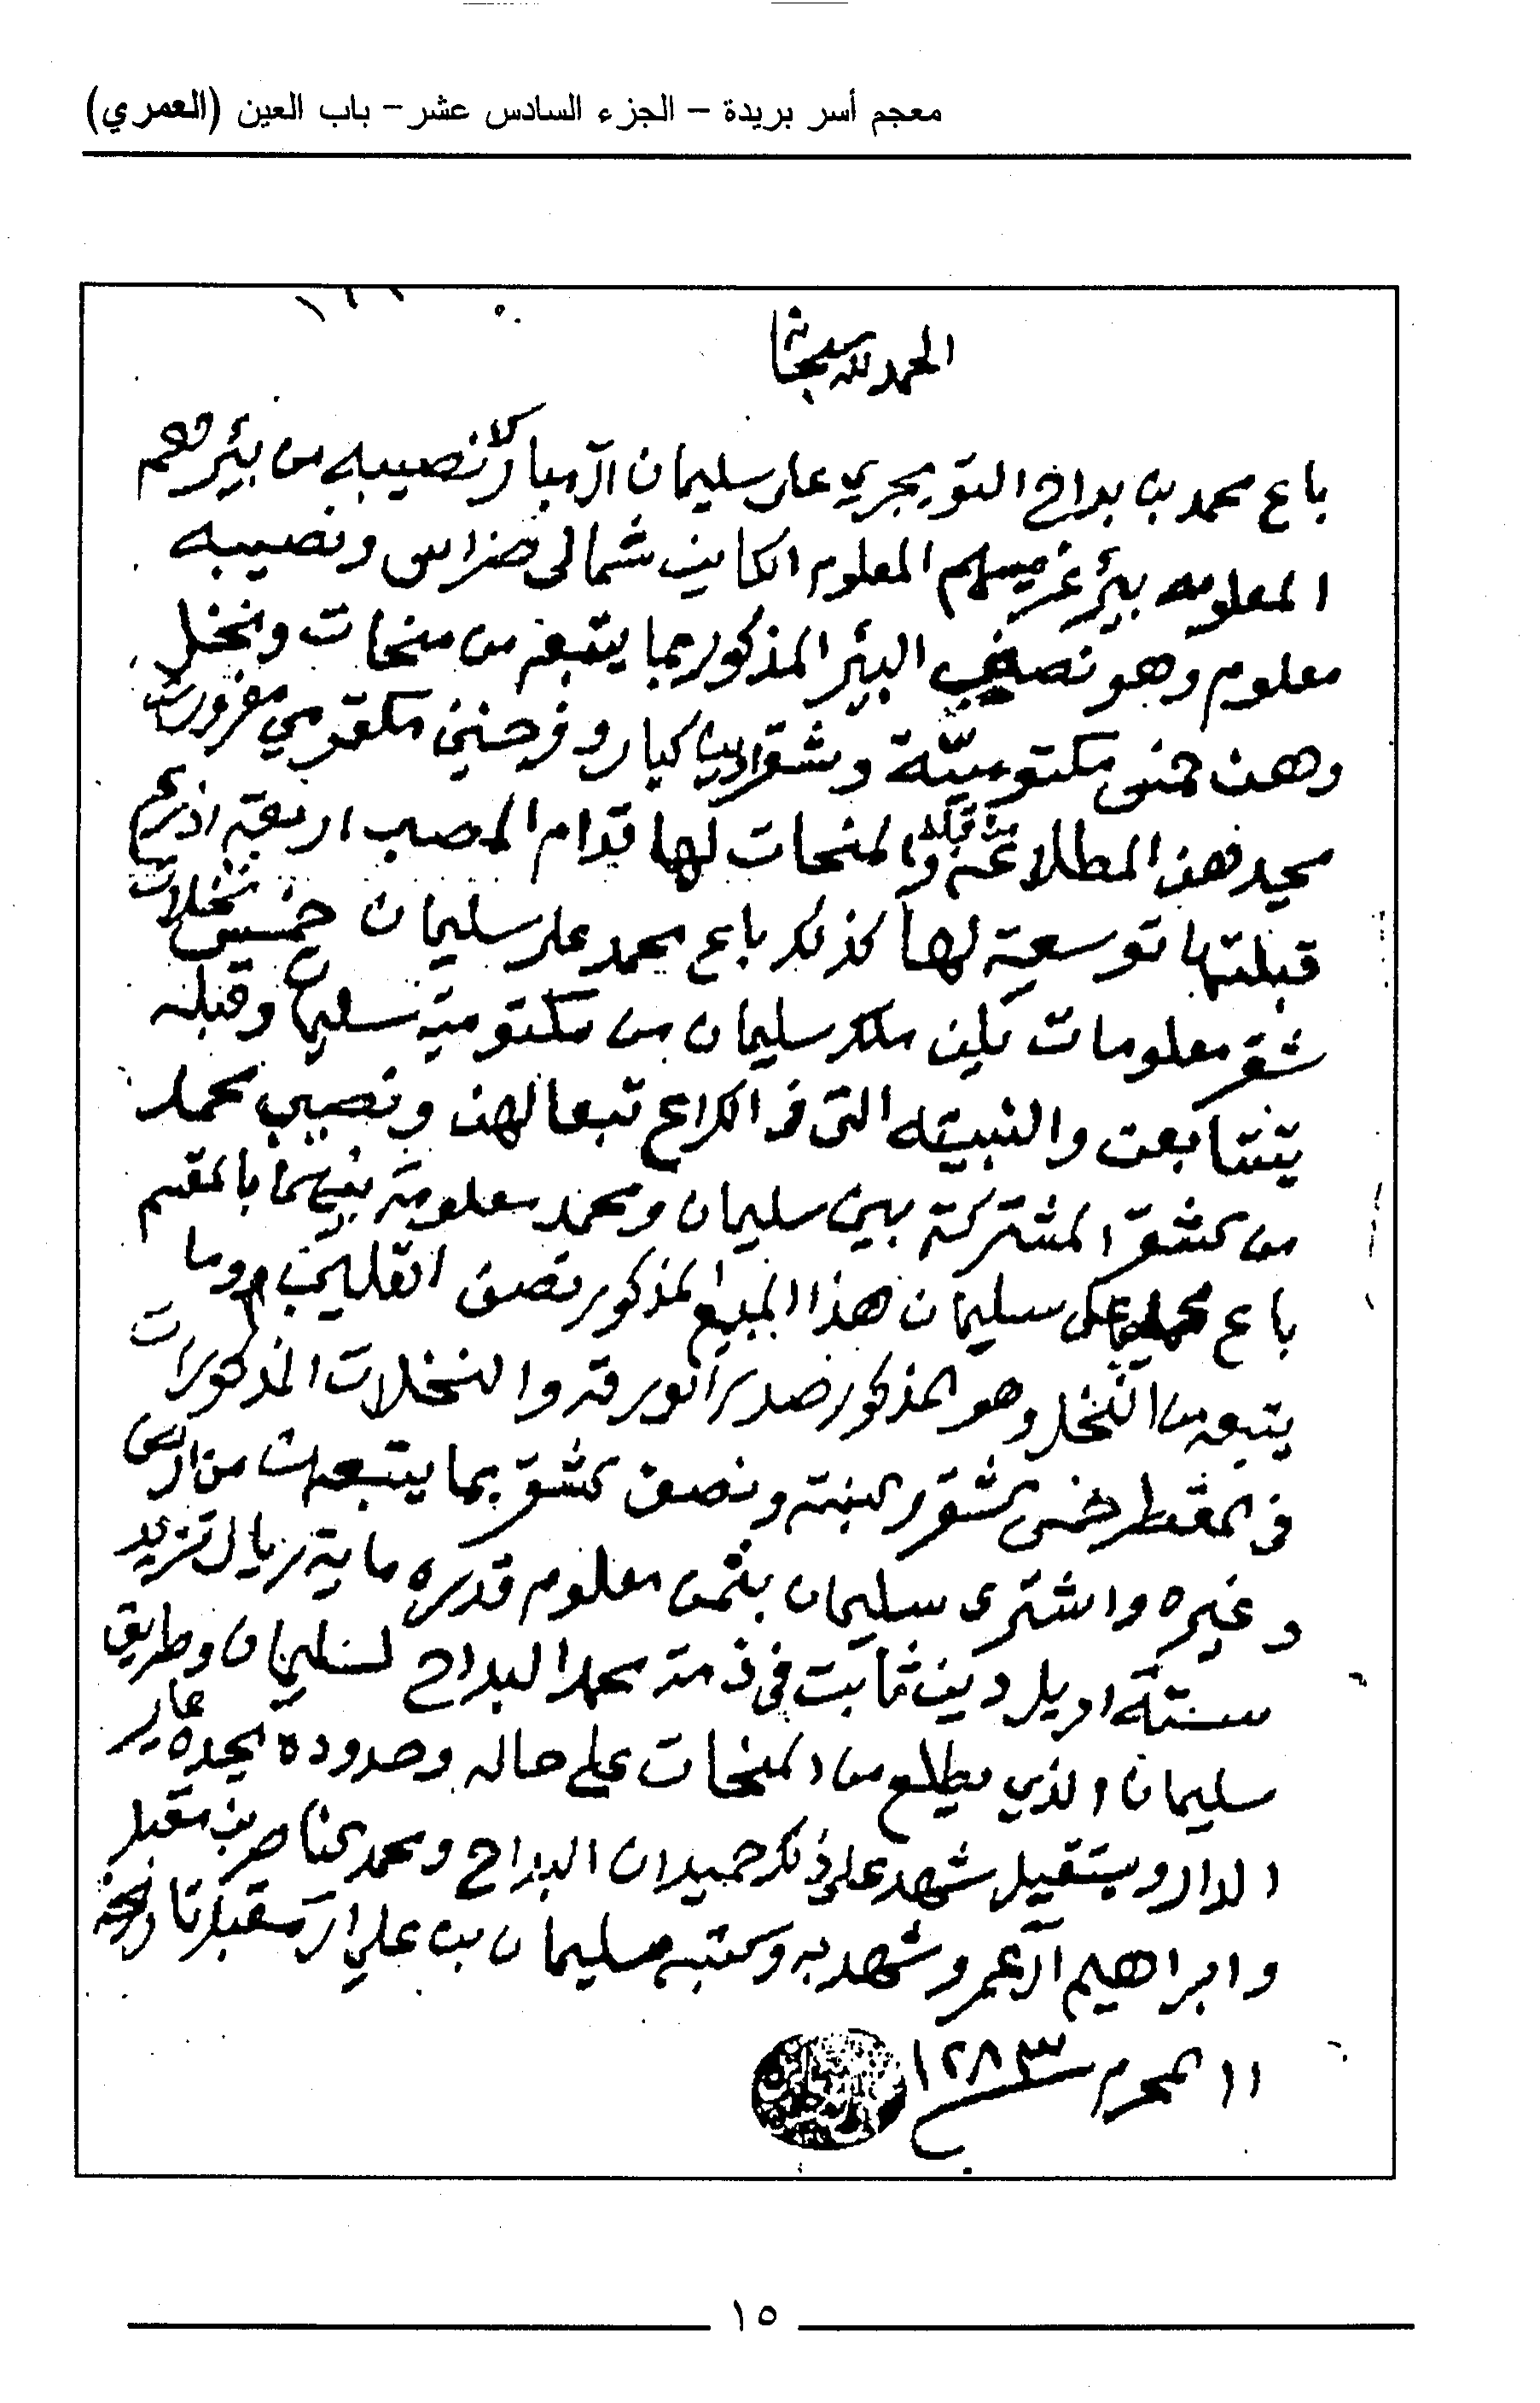 معجم أسر بريدة – الجزء السادس عشر – باب العين (العمري)
الحمد لله سبحانه
باع محمد بن بداح التويجري على سليمان آل مبارك نصيبه من بئرهم
المعلومه بئر غريسهم المعلوم الكاين شمالي ضراس ونصيبه
معلوم وهو نصف البئر المذكور بما يتبعه من منحات ونخل
وهن خمس مكتومية وشقر كبار وفرخين مكتومي
هذن المطلاع والمنحات لها قدام المصب اربعة اذرع
قبلتها توسعة لها كذلك باع محمد على سليمان خمس نخلات
شقر معلومات يلين ملك سليمان من مكتومية سليمان وقبله
يتتابعن والنبيته التي في الكراع تبعا لهن ونصيب محمد
من الشقر المشتركة بين سليمان ومحمد معلومة بينهما بالمقسم
باع محمد على سليمان هذا المبيع المذكور نصف القليب وما
يتبعه من النخل وهو المذكور صدر الورقه والنخلات المذكورات
في المقطر خمس الشقر والنبته ونصف الشقر بما يتبعه من ارض
وغيره واشترى سليمان بثمن معلوم قدره ماية ريال تزيد
ستة اريل دين ثابت في ذمة محمد البداح لسليمان وطريق
سليمان الذي يطلع من المنحات على حاله وحدوده يحده جار
الدار ويستقيل شهد على ذلك حميدان البداح ومحمد الناصر بن مقبل
وابراهيم آل عمر وشهد به وكتبه سليمان بن علي آل مقبل تاريخه
١١ المحرم ١٢٨٣
١٥